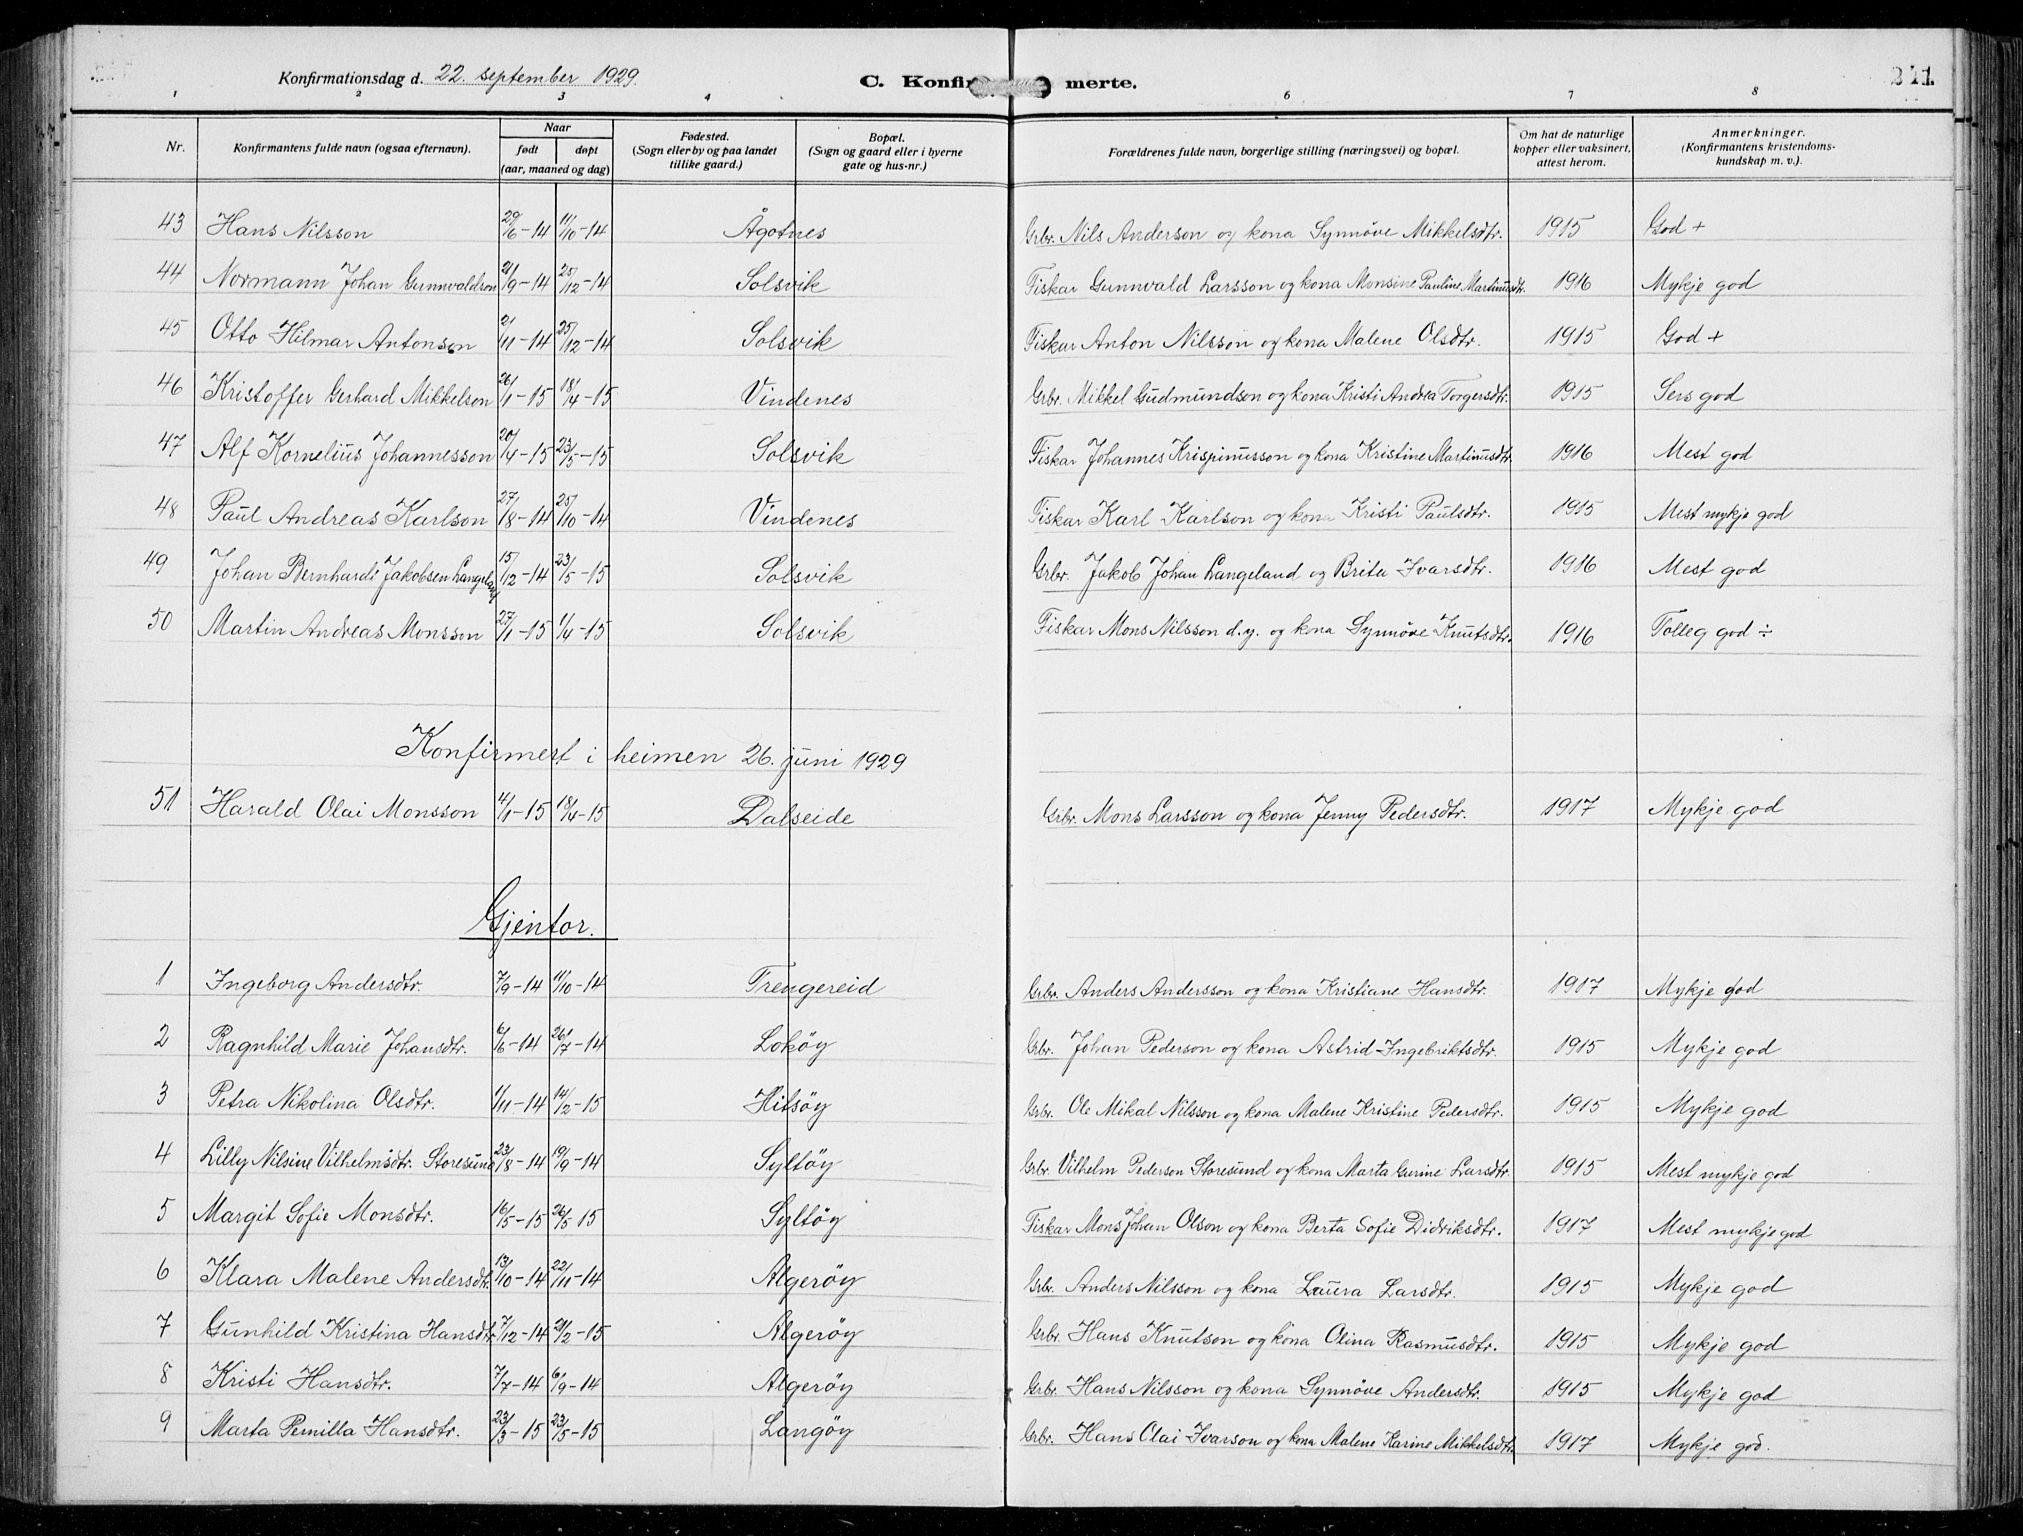 Konfirmationsdag d. 22. september 1929. C. Konfir merte. 241.
1 2 3 4 6 7 8
Nr. Konfirmantens fulde navn (ogsaa efternavn). Naar født døpt (aar, maaned og dag) Fødested. (Sogn eller by og paa landet tillike gaard.) Bopæl. (Sogn og gaard eller i byerne gate og hus-nr.) Forældrenes fulde navn, borgerlige stilling (næringsvei) og bopæl. Om hat de naturlige kopper eller vaksinert, attest herom. Anmerkninger. (Konfirmantens kristendoms-kundskap m. v.).
43 Hans Nilsson 29/6-14 11/10-14 Ågotnes Grbr. Nils Anderson og kona Synnöve Mikkelsdtr. 1915 God +
44 Normann Johan Gunnvaldson 21/9-14 25/12-14 Solsvik Fiskar Gunnvald Larsson og kona Monsine Pauline Martinusdtr. 1916 Mykje god
45 Otto Hilmar Antonson 2/11-14 25/12-14 Solsvik Fiskar Anton Nilsson og kona Malene Olsdtr. 1915 God +
46 Kristoffer Gerhard Mikkelson 26/1-15 18/4-15 Vindenes Grbr. Mikkel Gudmundson og kona Kristi Andrea Torgersdtr. 1915 Sers god
47 Alf Kornelius Johannesson 20/4-15 23/5-15 Solsvik Fiskar Johannes Krispinusson og kona Kristine Martinusdtr. 1916 Mest god
48 Paul Andreas Karlson 27/8-14 25/10-14 Vindenes Fiskar Karl Karlson og kona Kristi Paulsdtr. 1915 Mest mykje god
49 Johan Bernhard Jakobsen Langeland 15/12-14 23/5-15 Solsvik Grbr. Jakob Johan Langeland og Brita Ivarsdtr. 1916 Mest god
50 Martin Andreas Monsson 27/1-15 1/4-15 Solsvik Fiskar Mons Nilsson d.y. og kona Synnöve Knutsdtr. 1916 Tolleg god ÷
Konfirmert i heimen 26. juni 1929
51 Harald Olai Monsson 4/1-15 18/4-15 Dalseide Grbr. Mons Larsson og kona Jenny Pedersdtr. 1917 Mykje god
Gjentor.
1 Ingeborg Andersdtr. 7/9-14 11/10-14 Trengereid Grbr. Anders Andersson og kona Kristiane Hansdtr. 1917 Mykje god
2 Ragnhild Marie Johansdtr. 6/6-14 26/7-14 Loköy Grbr. Johan Pederson og kona Astrid Ingebriktsdtr. 1915 Mykje god
3 Petra Nikolina Olsdtr. 1/11-14 14/2-15 Hitsöy Grbr. Ole Mikal Nilsson og kona Malene Kristine Pedersdtr. 1915 Mykje god
4 Lilly Nilsine Vilhelmsdtr. Storesund 23/8-14 19/9-14 Syltöy Grbr. Vilhelm Pederson Storesund og kona Marta Gurine Larsdtr. 1915 Mest mykje god
5 Margit Sofie Monsdtr. 16/5-15 26/5 15 Syltöy Fiskar Mons Johan Olson og kona Berta Sofie Didriksdtr. 1917 Mest mykje god
6 Klara Malene Andersdtr. 13/10-14 22/11-14 Algeröy Grbr. Anders Nilsson og kona Laura Larsdtr. 1915 Mykje god
7 Gunhild Kristina Hansdtr. 7/12-14 21/2-15 Algeröy Grbr. Hans Knutson og kona Olina Rasmusdtr. 1915 Mykje god
8 Kristi Hansdtr. 7/7-14 6/9-14 Algeröy Grbr. Hans Nilsson og kona Synnöve Andersdtr. 1915 Mykje god
9 Marta Pernilla Hansdtr. 23/3-15 23/5-15 Langöy Grbr. Hans Olai Ivarson og kona Malene Karine Mikkelsdtr. 1917 Mykje god.